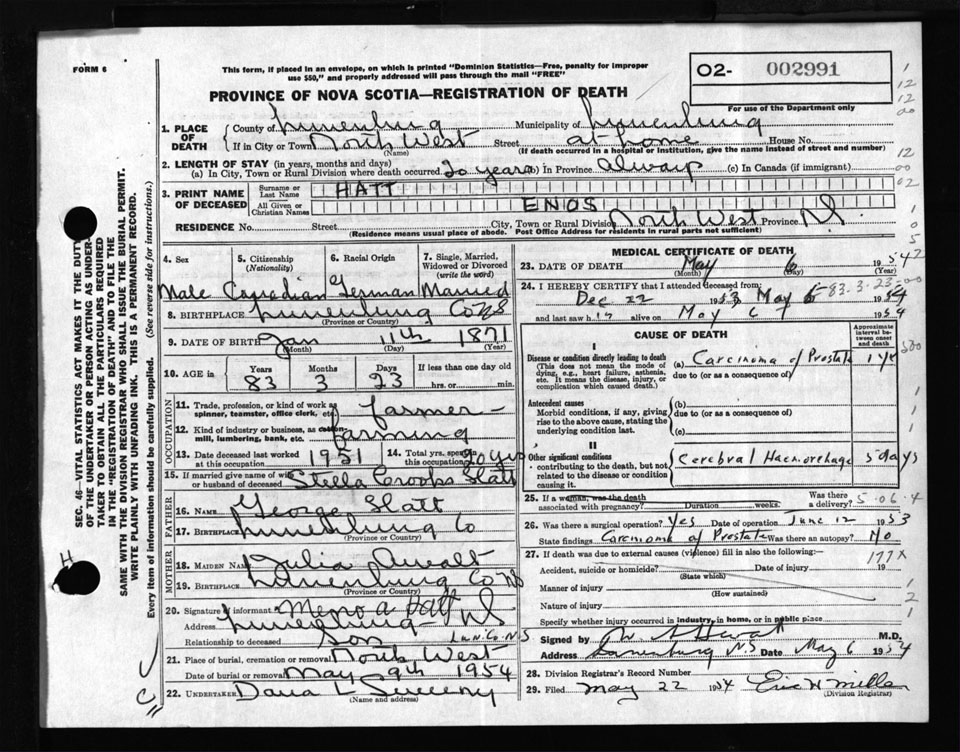 FORM 6
This form, if placed in an envelope, on which is printed "Dominion Statistics—Free, penalty for improper
use $50," and properly addressed will pass through the mail "FREE"
O2- 002991
For use of the Department only
PROVINCE OF NOVA SCOTIA—REGISTRATION OF DEATH
1. PLACE OF DEATH County of Lunenburg Municipality of Lunenburg
If in City or Town North West (Name) Street at home House No.
(If death occurred in a hospital or institution, give the name instead of street and number)
2. LENGTH OF STAY (in years, months and days)
(a) In City, Town or Rural Division where death occurred 20 years (b) In Province always (c) In Canada (if immigrant)
3. PRINT NAME OF DECEASED Surname or Last Name HATT
All Given or Christian Names ENOS
RESIDENCE No. Street City, Town or Rural Division North West Province NS
(Residence means usual place of abode. Post Office Address for residents in rural parts not sufficient)
4. Sex 5. Citizenship (Nationality) 6. Racial Origin 7. Single, Married, Widowed or Divorced (write the word)
Male Canadian German Married
8. BIRTHPLACE Lunenburg Co NS
(Province or Country)
9. DATE OF BIRTH Jan 11th 1871
(Month) (Day) (Year)
10. AGE in Years Months Days If less than one day old
83 3 23 hrs. or min.
OCCUPATION
11. Trade, profession, or kind of work as spinner, teamster, office clerk, etc. Farmer
12. Kind of industry or business, as cotton-mill, lumbering, bank, etc. farming
13. Date deceased last worked at this occupation 1951 14. Total yrs. spent in this occupation 20 yrs
15. If married give name of wife or husband of deceased Stella Crooks Hatt
FATHER
16. Name George Hatt
17. Birthplace Lunenburg Co
(Province or Country)
MOTHER
18. Maiden Name Julia
19. Birthplace Lunenburg Co NS
(Province or Country)
20. Signature of informant Hatt
Address Lunenburg NS
Lun. Co. N.S
Relationship to deceased Son
21. Place of burial, cremation or removal North West
Date of burial or removal May 9th 1954
22. UNDERTAKER Dana L Sweeny
(Name and address)
MEDICAL CERTIFICATE OF DEATH
23. DATE OF DEATH May 6 1954
(Month) (Day) (Year)
24. I HEREBY CERTIFY that I attended deceased from:
83-3-23
Dec 22 1953 May 6 1954
and last saw h alive on May 6 1954
CAUSE OF DEATH
Approximate interval between onset and death
I
Disease or condition directly leading to death (a) Carcinoma of Prostate 1 yr
(This does not mean the mode of dying, e.g., heart failure, asthenia, etc. It means the disease, injury, or complication which caused death.)
due to (or as a consequence of)
Antecedent causes
Morbid conditions, if any, giving rise to the above cause, stating the underlying condition last.
(b)
due to (or as a consequence of)
(c)
II
Other significant conditions
contributing to the death, but not related to the disease or condition causing it.
Cerebral Haemorrhage 5 days
25. If a woman, was the death associated with pregnancy? Duration weeks. Was there a delivery?
5.06.4
26. Was there a surgical operation? Yes Date of operation June 12 1953
State findings Carcinoma of Prostate Was there an autopsy? No
27. If death was due to external causes (violence) fill in also the following:—
177X
Accident, suicide or homicide? Date of injury 19
(State which)
Manner of injury
(How sustained)
Nature of injury
Specify whether injury occurred in industry, in home, or in public place
Signed by M.D.
Address Lunenburg NS Date May 6 1954
28. Division Registrar's Record Number
29. Filed May 22 1954
(Division Registrar)
SEC. 46—VITAL STATISTICS ACT MAKES IT THE DUTY
OF THE UNDERTAKER OR PERSON ACTING AS UNDER-
TAKER TO OBTAIN ALL THE PARTICULARS REQUIRED
IN THE "REGISTRATION OF DEATH" AND TO FILE THE
SAME WITH THE DIVISION REGISTRAR WHO SHALL ISSUE THE BURIAL PERMIT.
WRITE PLAINLY WITH UNFADING INK. THIS IS A PERMANENT RECORD.
Every item of information should be carefully supplied. (See reverse side for instructions.)